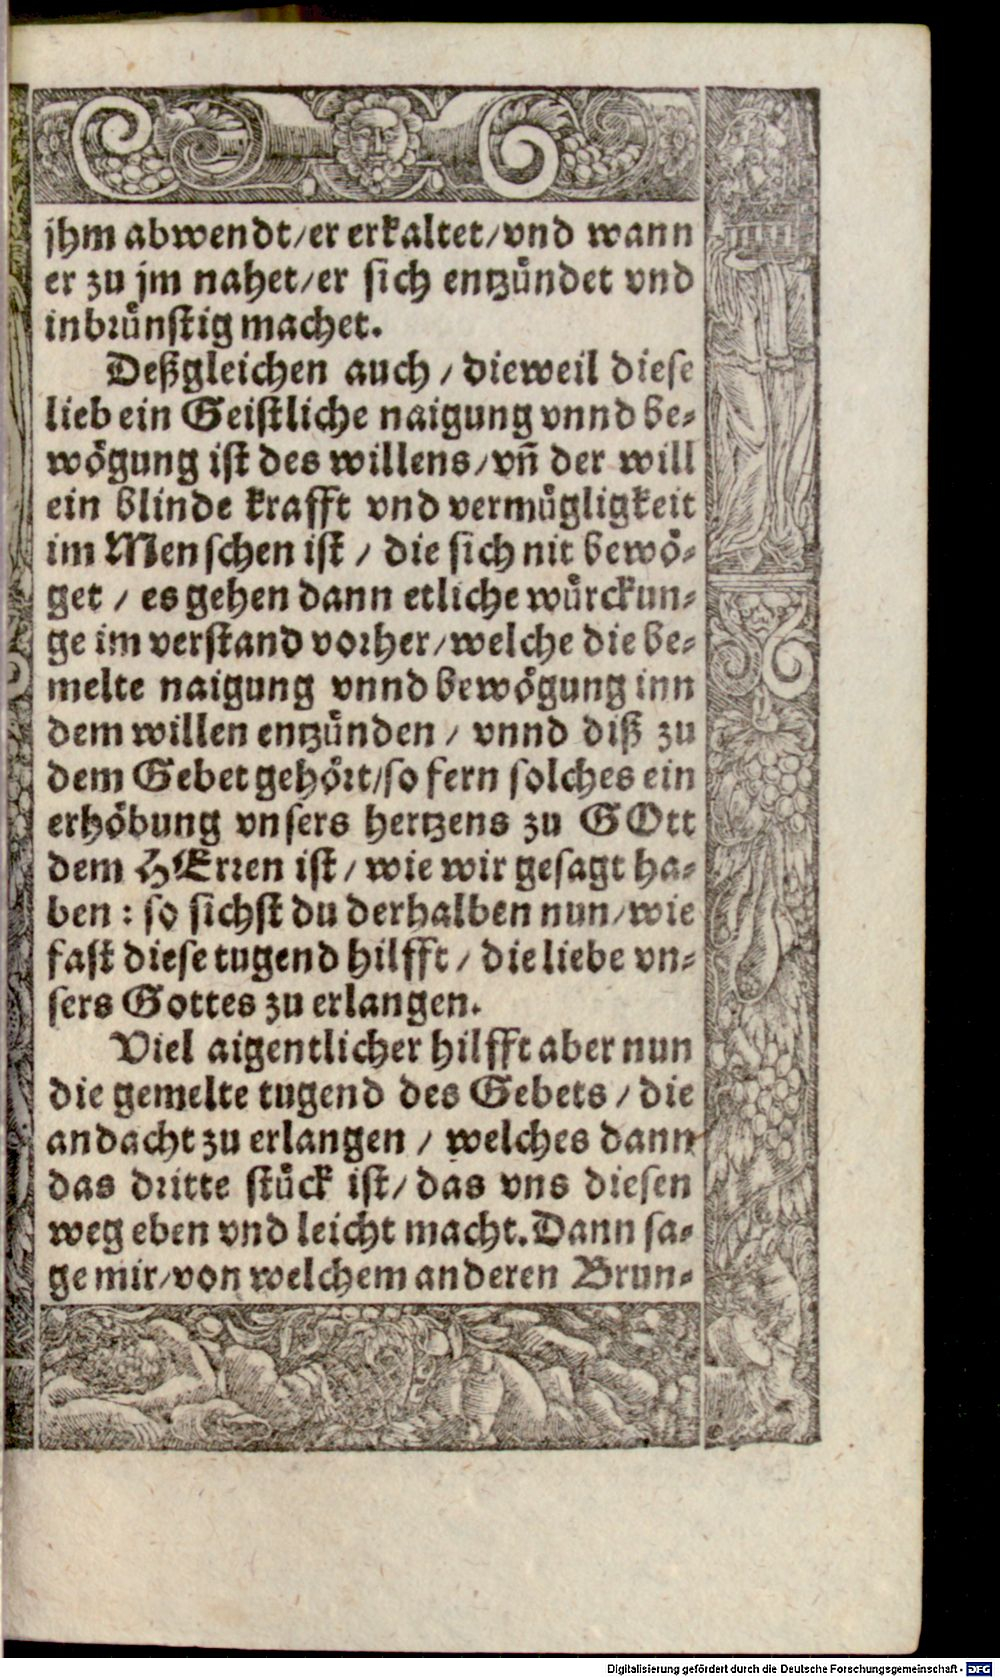 jhm abwendt/er erkaltet/vnd wann
er zu jm nahet/er sich entzuͤndet vnd
inbruͤnstig machet.
Deßgleichen auch / dieweil diese
lieb ein Geistliche naigung vnnd be⸗
woͤgung ist des willens/vñ der will
ein blinde krafft vnd vermuͤgligkeit
im Menschen ist / die sich nit bewoͤ⸗
get / es gehen dann etliche wuͤrckun⸗
ge im verstand vorher/welche die be⸗
melte naigung vnnd bewoͤgung inn
dem willen entzuͤnden / vnnd diß zu
dem Gebet gehoͤrt/so fern solches ein
erhoͤbung vnsers hertzens zu GOtt
dem HErren ist / wie wir gesagt ha⸗
ben : so sichst du derhalben nun/wie
fast diese tugend hilfft / die liebe vn⸗
sers Gottes zu erlangen.
Viel aigentlicher hilfft aber nun
die gemelte tugend des Gebets / die
andacht zu erlangen / welches dann
das dritte stuͤck ist/das vns diesen
weg eben vnd leicht macht. Dann sa⸗
ge mir/von welchem anderen Brun⸗
Digitalisierung gefördert durch die Deutsche Forschungsgemeinschaft - DFG